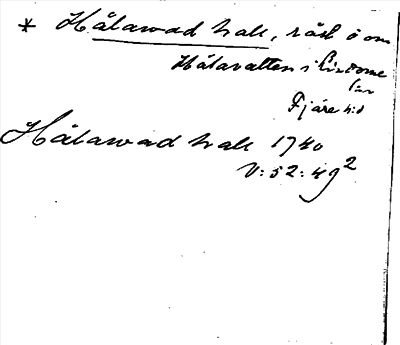 * Hålawad hall, råsk ö om
Hålavatten i Lindome
sn
Fjäre hd
Hålawad hall 1740
V:52:49²